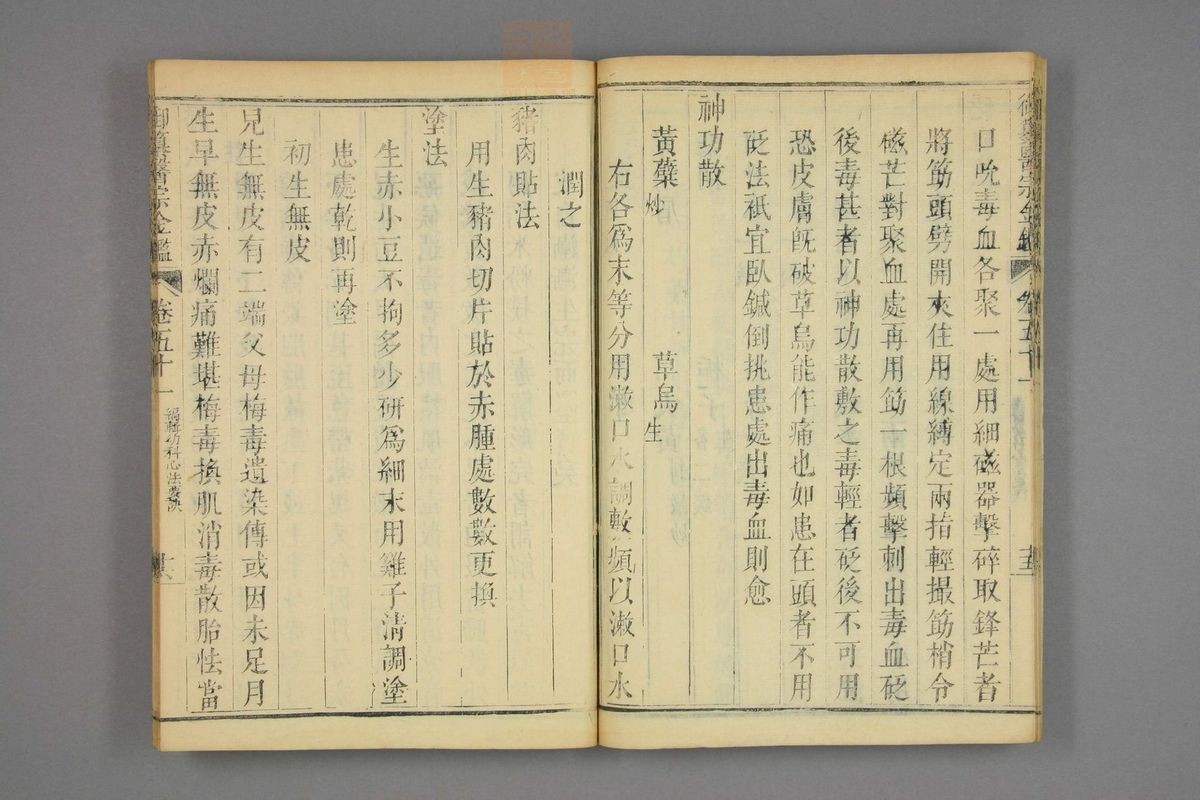 口吮毒血各聚一處用細磁器擊碎取鋒芒者
將筯頭劈開夾住用線縛定兩指輕撮筯梢令
磁芒對聚血處再用筯一根頻擊刺出毒血砭
後毒甚者以神功散敷之毒輕者砭後不可用
恐皮膚旣破草烏能作痛也如患在頭者不用
砭法衹宜臥鍼倒挑患處出毒血則愈
神功散
黃蘗炒 草烏生
右各爲末等分用漱口水調敷頻以漱口水
潤之
豬肉貼法
用生豬肉切片貼於赤腫處數數更換
塗法
生赤小豆不拘多少研爲細末用雞子清調塗
患處乾則再塗
初生無皮
兒生無皮有二端父母梅毒遺染傳或因未足月
生早無皮赤爛痛難堪梅毒換肌消毒散胎怯當
御纂醫宗金鑑 卷五十一 編輯幼科心法要訣